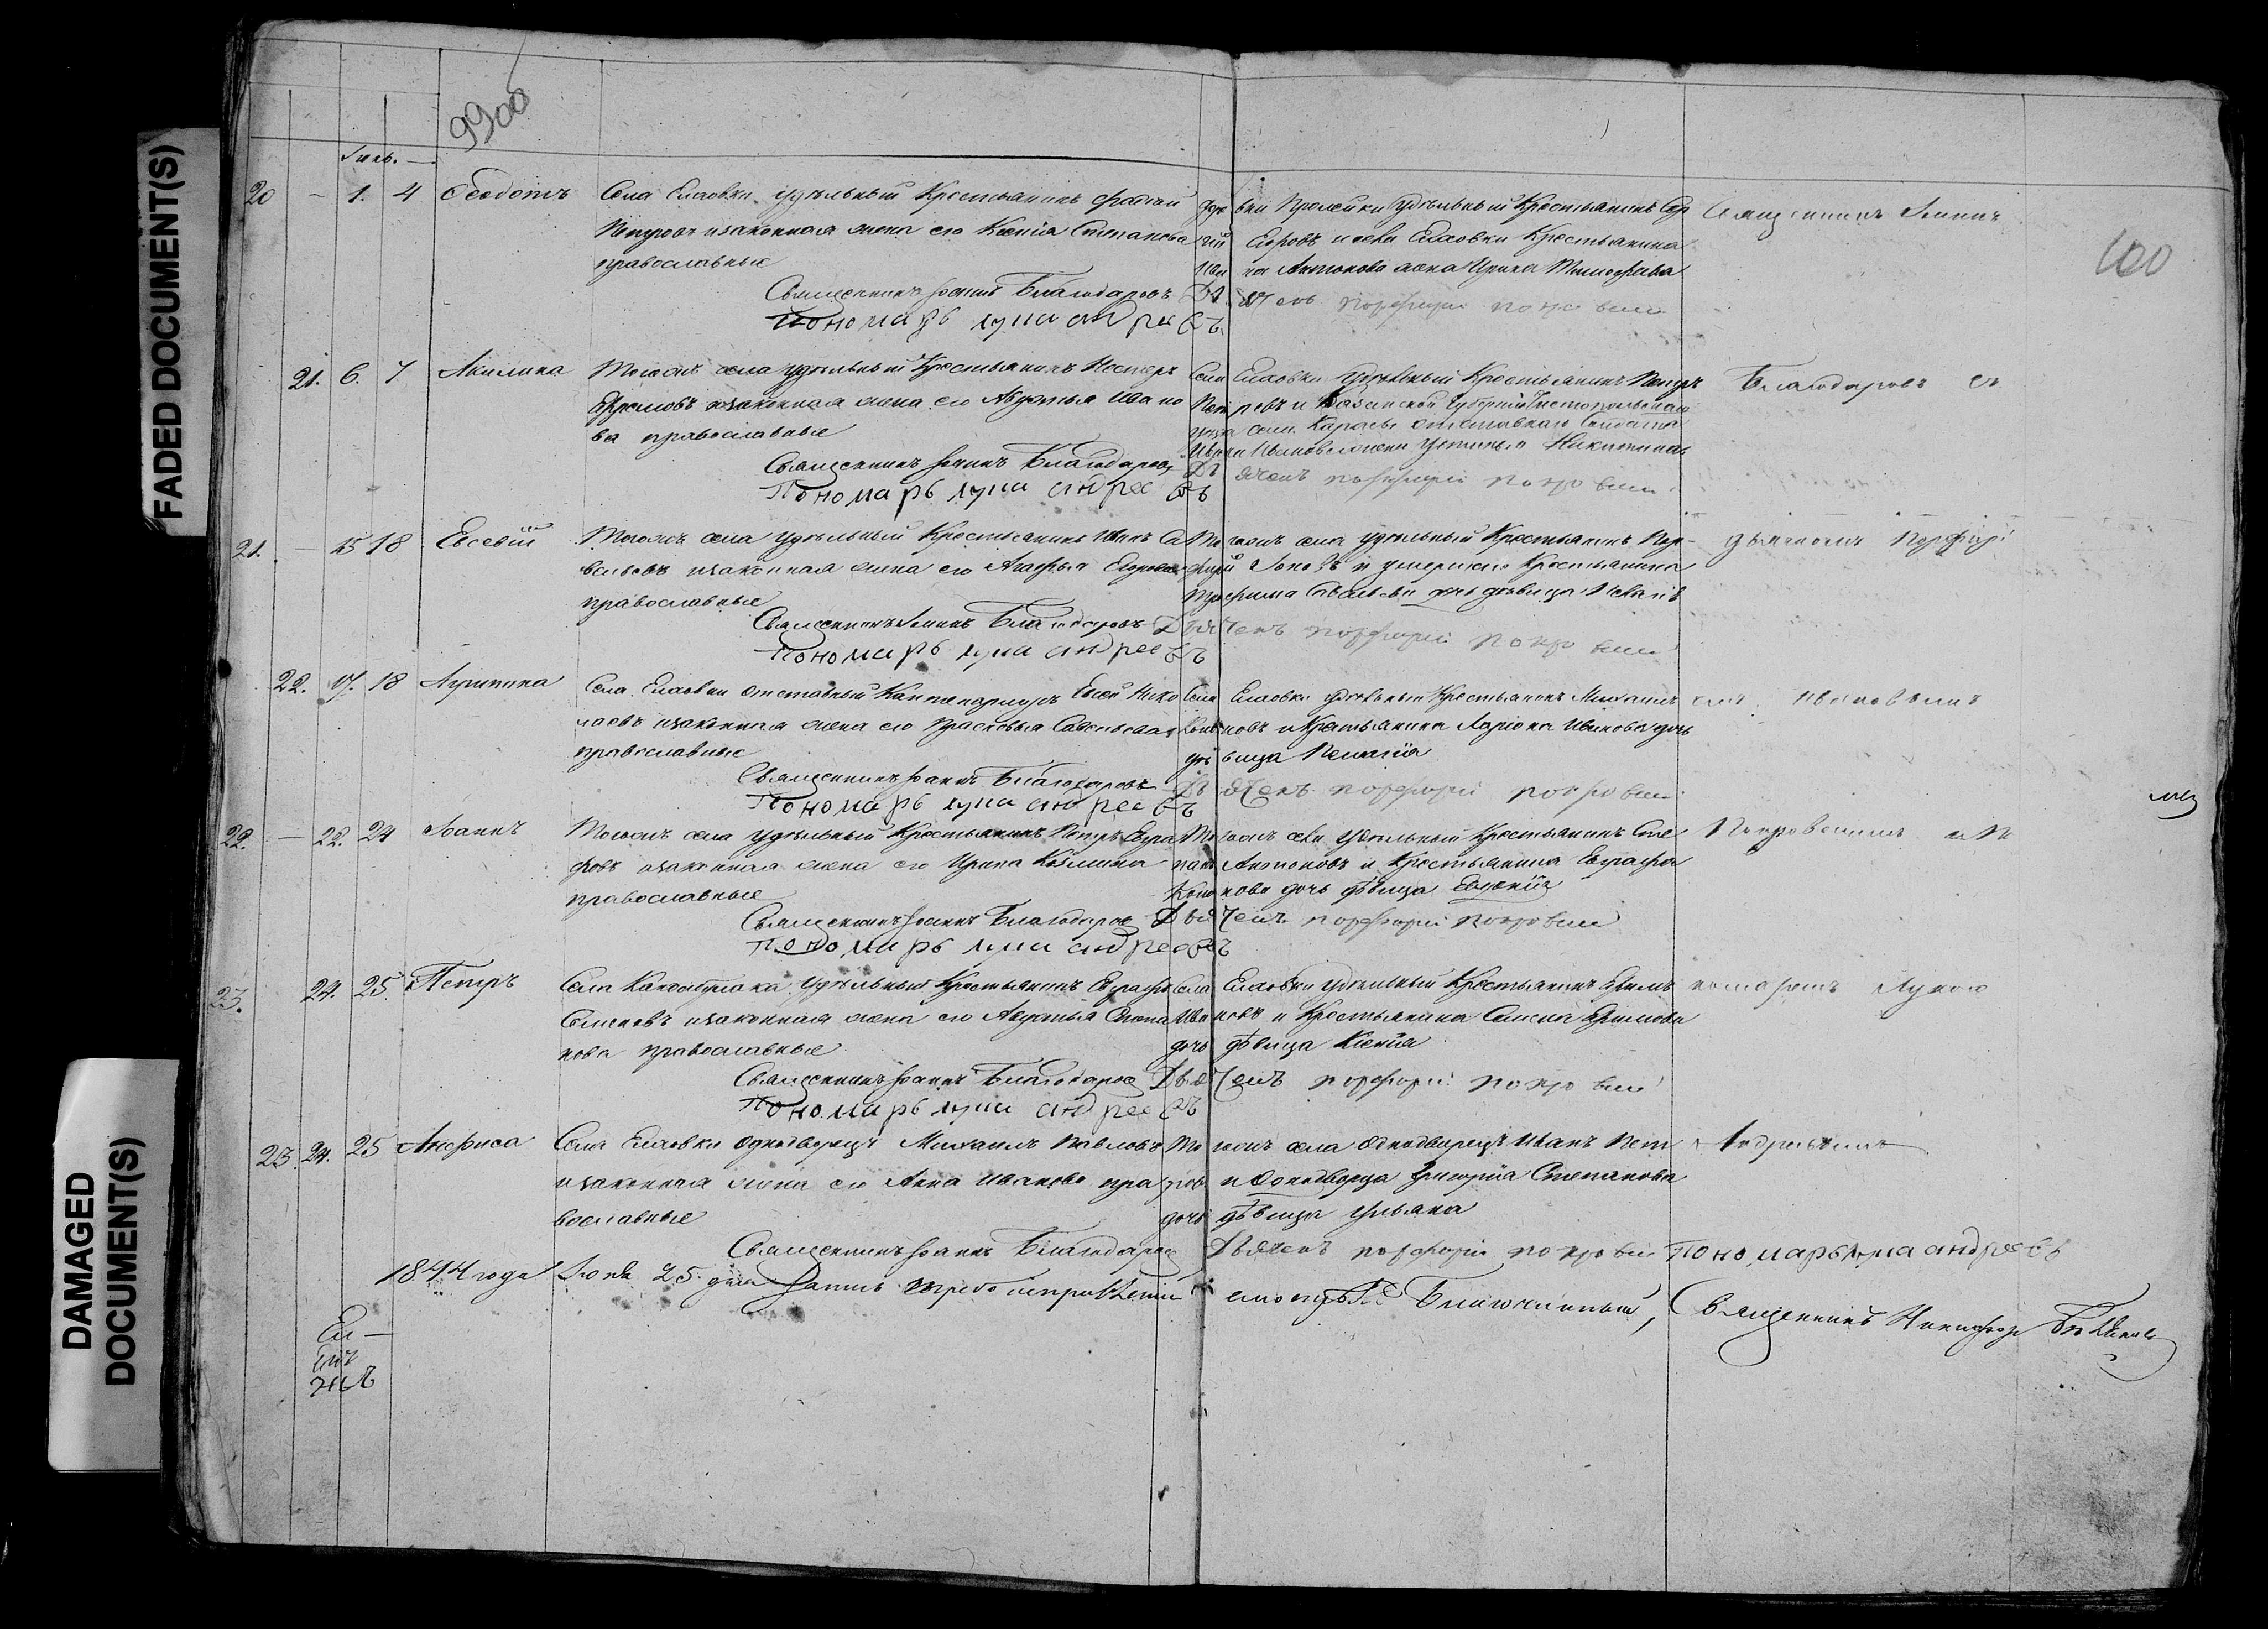 FADED DOCUMENT(S)
DAMAGED DOCUMENT(S)
9900
100
Іюнь.
20 – 1. 4 Ѳеодотъ
Села Елховки удѣльный Крестьянинъ
Петровъ и законная жена его Ксенія Степанова
православные
Священникъ Іоаннъ Благодаровъ
Пономарь Лука Андреевъ
деревни Пролейки Удѣльный Крестьянинъ Сер
гій Егоровъ и села Елховки Крестьянина
Ивана Антонова жена Ирина Тимофеева
Дьячекъ Порфирій Покровскій
Священникъ Іоаннъ
21. 6. 7 Акилина
Тогожъ села удѣльный Крестьянинъ Нестеръ
Ефремовъ и законная жена его Авдотья Ивано
ва православные
Священникъ Іоаннъ Благодаровъ
Пономарь Лука Андреевъ
Села Елховки Удѣльный Крестьянинъ Петръ
Петровъ и Казанской Губерніи Чистопольскаго
уѣзда села отставнаго Солдата
жена Устинья Никитина
Дьячекъ Порфирій Покровскій
Благодаровъ съ
21. – 15 18 Евсевій
Тогожъ села Удѣльный Крестьянинъ Иванъ Са
вельевъ и законная жена его Агафья Егорова
православные
Священникъ Іоаннъ Благодаровъ
Пономарь Лука Андреевъ
Тогожъ села удѣльный Крестьянинъ Пор-
фирій и умершаго Крестьянина
Трофима Савельева дочь дѣвица
Дьячекъ Порфирій Покровскій
дьячкомъ Порфирі
22. 17. 18 Агрипина
Села Елховки отставный Каптенармусъ Евсей Нико
лаевъ и законная жена его Прасковья Савельева
православные
Священникъ Іоаннъ Благодаровъ
Пономарь Лука Андреевъ
Села Елховки удѣльный Крестьянинъ Михаилъ
и Крестьянина Ларіона Иванова дочь
дѣвица Пелагія
Дьячекъ Порфирій Покровскій
емъ Ивановымъ
22. – 22. 24 Іоаннъ
Тогожъ села удѣльный Крестьянинъ Петръ Евгра
фовъ и законная жена его Ирина Козмина
православные
Священникъ Іоаннъ Благодаровъ
Пономарь Лука Андреевъ
Тогожъ села Удѣльный Крестьянинъ Сте
панъ Антоновъ и Крестьянина Евграфа
Кононова дочь дѣвица Евгенія
Дьячекъ Порфирій Покровскій
Покровскимъ и По
23. 24. 25. Петръ
Села Удѣльный Крестьянинъ Евграфъ
Семеновъ и законная жена его Авдотья Степа
нова православные
Священникъ Іоаннъ Благодаровъ
Пономарь Лука Андреевъ
Села Елховки удѣльный Крестьянинъ Ефимъ
Ивановъ и Крестьянина Семена Ефимова
дочь дѣвица Ксенія
Дьячекъ Порфирій Покровскій
номаремъ Лукою
23. 24. 25 Анфиса
Села Елховки однодворецъ Михаилъ Павловъ
и законная жена его Анна Иванова пра
вославные
Священникъ Іоаннъ Благодаровъ
Тогожъ села Однодворецъ Иванъ Пет
ровъ и Однодворца Григорія Степанова
дочь дѣвица Ульяна
Дьячекъ Порфирій Покровскій Пономарь Лука Андреевъ
Андреевымъ
1844 года Іюня 25 дня
смотрѣлъ Благочинный, Священникъ Никифоръ